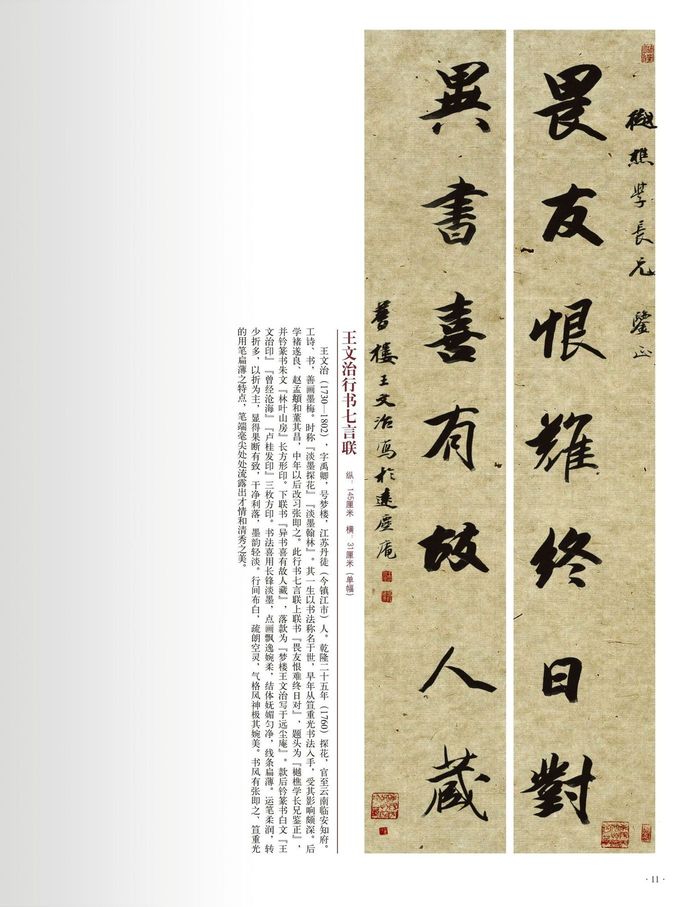 樾樵學長兄鑒正
畏友恨難終日對
異書喜有故人藏
夢樓王文治寫於遠塵庵
王文治行书七言联
纵：145厘米　横：31厘米（单幅）
王文治（1730—1802），字禹卿，号梦楼，江苏丹徒（今镇江市）人。乾隆二十五年（1760）探花，官至云南临安知府。
工诗、书，善画墨梅。时称『淡墨探花』『淡墨翰林』。其一生以书法称名于世，早年从笪重光书法入手，受其影响颇深。后
学褚遂良、赵孟頫和董其昌，中年以后改习张即之。此行书七言联上联书『畏友恨难终日对』，题头为『樾樵学长兄鉴正』，
并钤篆书朱文『林叶山房』长方形印。下联书『异书喜有故人藏』，落款为『梦楼王文治写于远尘庵』。款后钤篆书白文『王
文治印』『曾经沧海』『卢桂发印』三枚方印。书法喜用长锋淡墨，点画飘逸婉柔，结体妩媚匀净，线条扁薄。运笔柔润，转
少折多，以折为主，显得果断有致，干净利落，墨韵轻淡。行间布白，疏朗空灵，气格风神极其婉美。书风有张即之、笪重光
的用笔扁薄之特点，笔端毫尖处处流露出才情和清秀之美。
· 11 ·